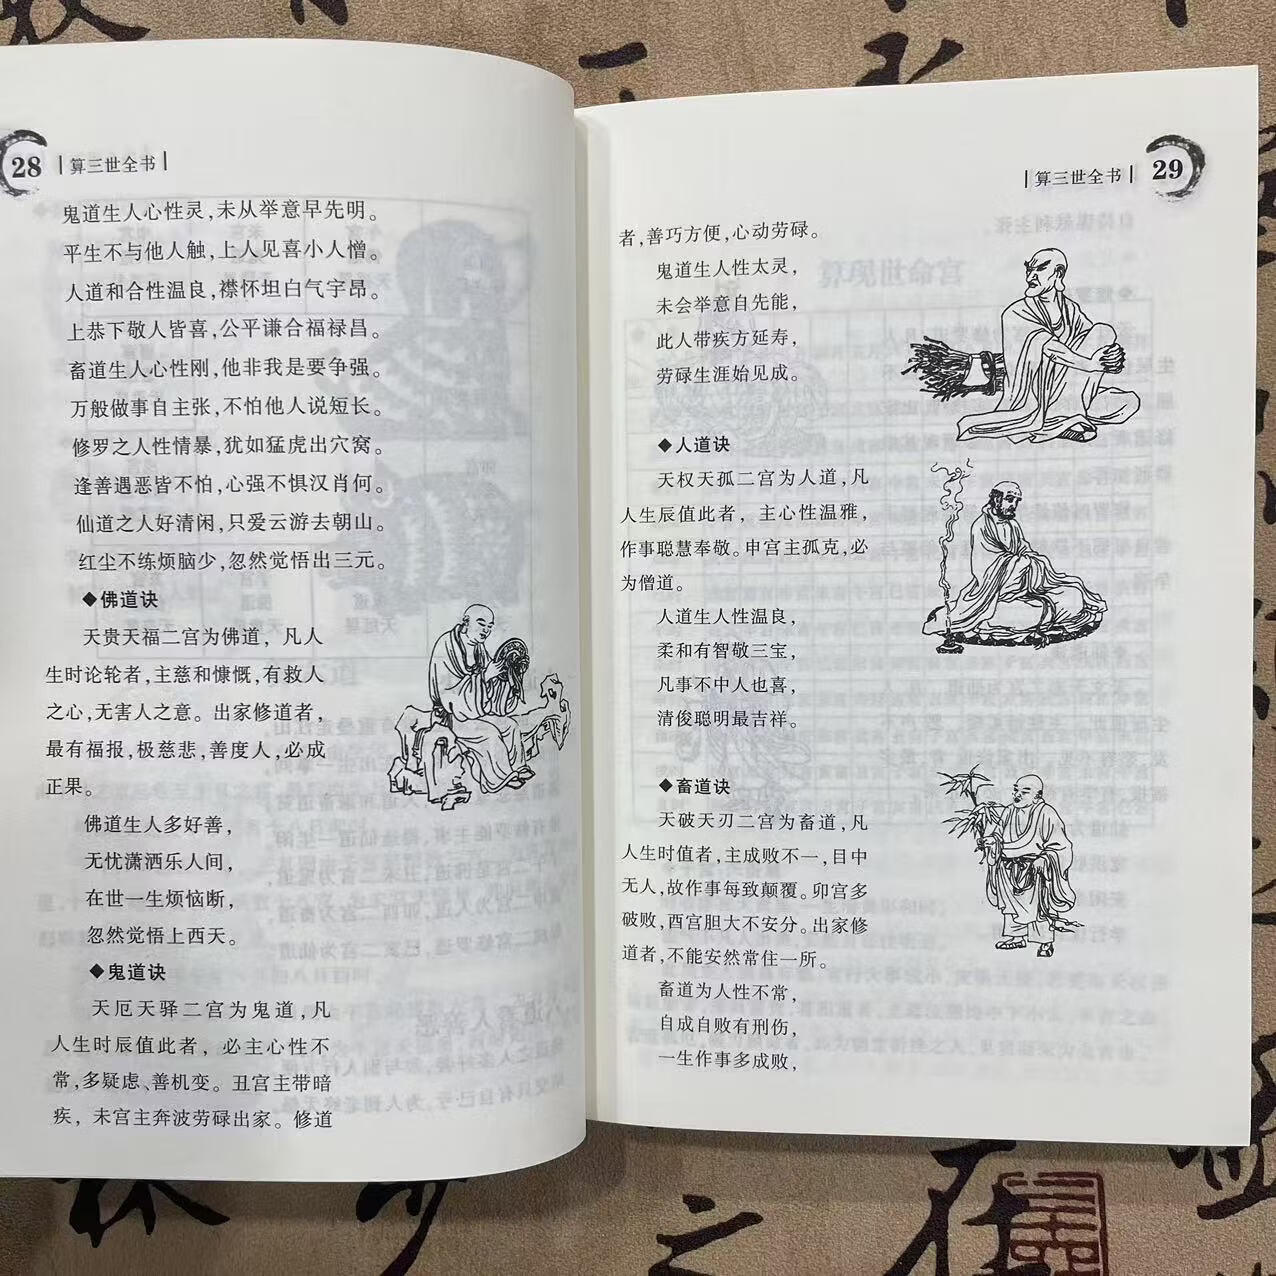 28 算三世全书
鬼道生人心性灵,未从举意早先明。
平生不与他人触,上人见喜小人憎。
人道和合性温良,襟怀坦白气宇昂。
上恭下敬人皆喜,公平谦合福禄昌。
畜道生人心性刚,他非我是要争强。
万般做事自主张,不怕他人说短长。
修罗之人性情暴,犹如猛虎出穴窝。
逢善遇恶皆不怕,心强不惧汉肖何。
仙道之人好清闲,只爱云游去朝山。
红尘不练烦脑少,忽然觉悟出三元。
◆佛道诀
天贵天福二宫为佛道，凡人
生时论轮者,主慈和慷慨,有救人
之心,无害人之意。出家修道者,
最有福报,极慈悲,善度人,必成
正果。
佛道生人多好善,
无忧潇洒乐人间,
在世一生烦恼断,
忽然觉悟上西天。
◆鬼道诀
天厄天驿二宫为鬼道,凡
人生时辰值此者，必主心性不
常,多疑虑、善机变。丑宫主带暗
疾，未宫主奔波劳碌出家。修道
算三世全书 29
者,善巧方便,心动劳碌。
鬼道生人性太灵,
未会举意自先能,
此人带疾方延寿,
劳碌生涯始见成。
◆人道诀
天权天孤二宫为人道,凡
人生辰值此者，主心性温雅,
作事聪慧奉敬。申宫主孤克,必
为僧道。
人道生人性温良,
柔和有智敬三宝,
凡事不中人也喜,
清俊聪明最吉祥。
◆畜道诀
天破天刃二宫为畜道,凡
人生时值者,主成败不一,目中
无人,故作事每致颠覆。卯宫多
破败,酉宫胆大不安分。出家修
道者,不能安然常住一所。
畜道为人性不常,
自成自败有刑伤,
一生作事多成败,